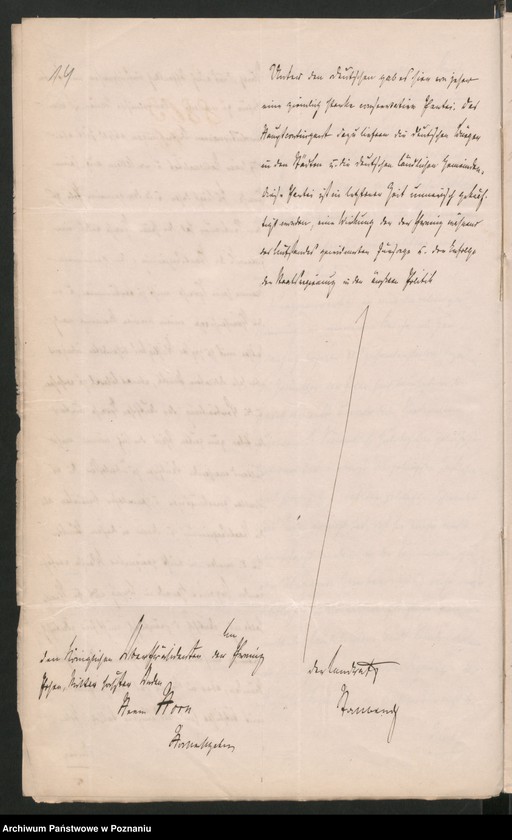 14
Unter den Deutschen gab es hier von jeher
eine ziemlich starke conservative Partei. Das
Hauptcontingent dazu liefern die deutschen Bürger
in den Städten u. die deutschen ländlichen Gemeinden.
Diese Partei ist in letzterer Zeit numerisch gekräf-
tigt worden, eine Wirkung der der Provinz während
des Aufstandes gewidmeten Fürsorge u. der Erfolge
der Staatsregierung in der äußern Politik
Der Landrath
An
den Königlichen Oberpräsidenten der Provinz
Posen, Ritter hoher Orden
Herrn Horn
Hochwohlgeboren
Archiwum Państwowe w Poznaniu